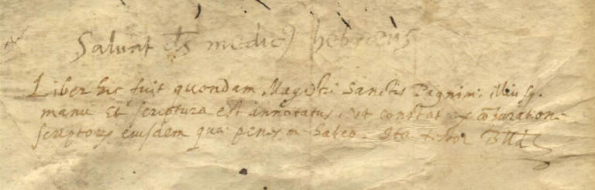 Salvat medic hebreus
Liber hic fuit quondam Magistri Sanctis Pagnini illius
manu et scriptura est annotatus, ut constat ex
scriptoris eiusdem penes me habeo.